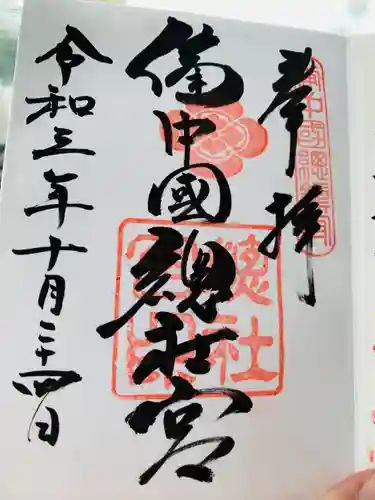 奉拝
備中國總社宮
令和三年十月二十四日
備中國總社宮
總社宮印